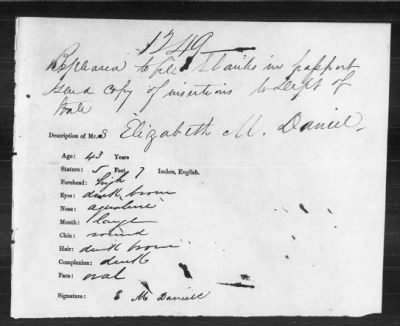 1249
Repleased to fill blanks in passport
send copy of insertions to Dept of
State
Description of Mrs Elizabeth M. Daniel.
Age: 43 Years
Stature: 5 Feet 7 Inches, English.
Forehead: high
Eyes: dark brown
Nose: aquiline
Mouth: large
Chin: round
Hair: dark brown
Complexion: dark
Face: oval
Signature: E M Daniell